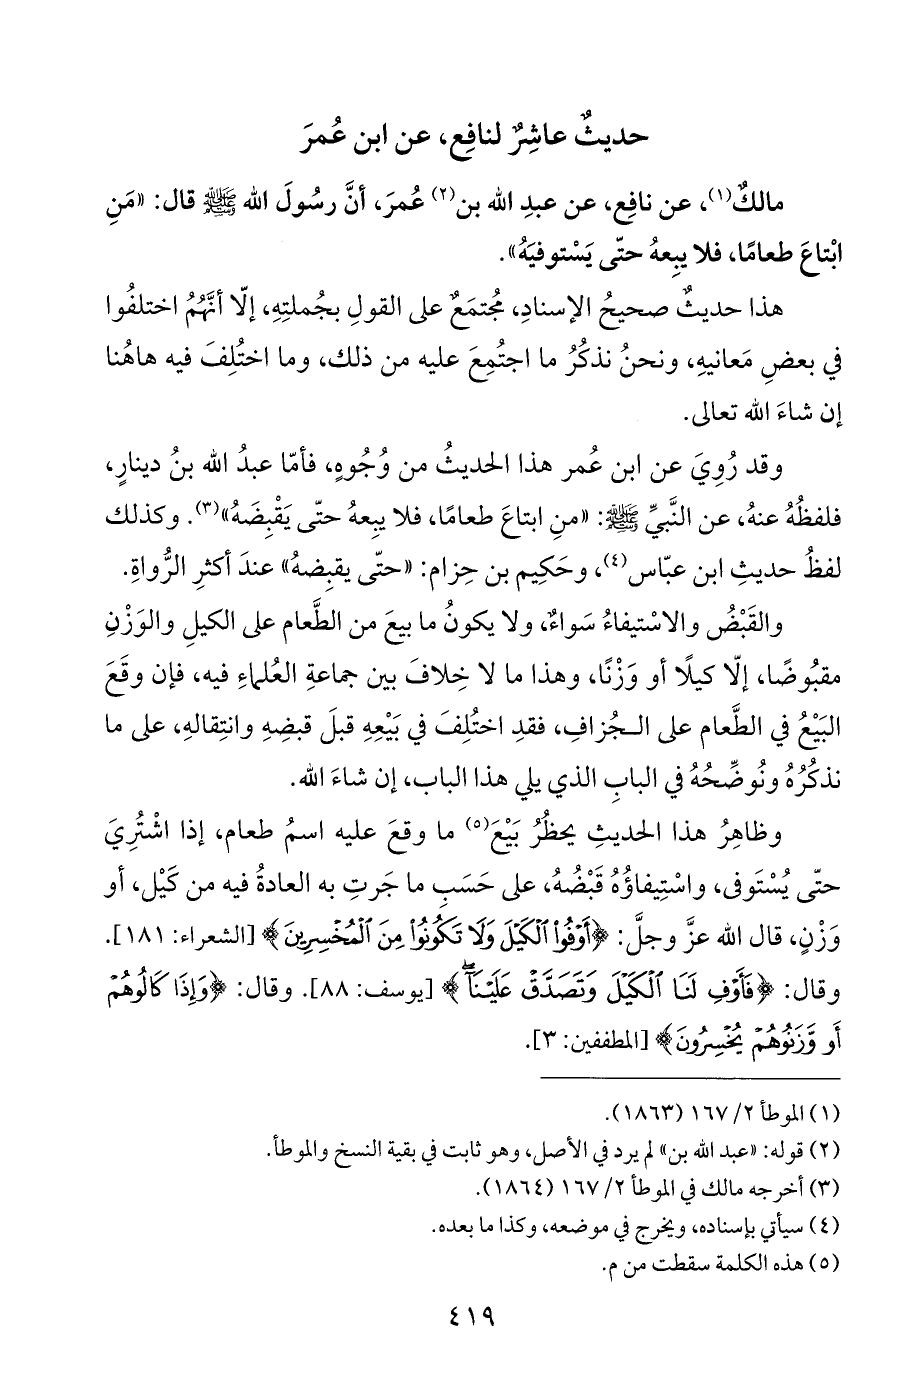 حديثٌ عاشِرٌ لنافِع، عن ابن عُمرَ
مالكٌ(١)، عن نافِع، عن عبدِ الله بن(٢) عُمرَ، أنَّ رسُولَ الله ﷺ قال: «مَنِ
ابْتاعَ طعامًا، فلا يبِعهُ حتّى يَسْتوفيَهُ».
هذا حديثٌ صحيحُ الإسنادِ، مُجتمَعٌ على القولِ بجُملتِهِ، إلّا أنَّهُمُ اختلفُوا
في بعضِ مَعانيهِ، ونحنُ نذكُرُ ما اجتُمِعَ عليه من ذلك، وما اختُلِفَ فيه هاهُنا
إن شاءَ الله تعالى.
وقد رُوِيَ عن ابن عُمر هذا الحديثُ من وُجُوهٍ، فأمّا عبدُ الله بنُ دينارٍ،
فلفظُهُ عنهُ، عن النَّبيِّ ﷺ: «منِ ابتاعَ طعامًا، فلا يبِعهُ حتّى يَقْبِضَهُ»(٣). وكذلك
لفظُ حديثِ ابن عبّاس(٤)، وحَكِيم بن حِزام: «حتّى يقبِضهُ» عندَ أكثرِ الرُّواةِ.
والقَبْضُ والاسْتيفاءُ سَواءٌ، ولا يكونُ ما بيعَ من الطَّعام على الكيلِ والوَزْنِ
مقبُوضًا، إلّا كيلًا أو وَزْنًا، وهذا ما لا خِلافَ بين جماعةِ العُلماءِ فيه، فإن وقَعَ
البَيْعُ في الطَّعام على الـجُزافِ، فقدِ اختُلِفَ في بَيْعِهِ قبلَ قبضِهِ وانتِقالِهِ، على ما
نذكُرُهُ ونُوضِّحُهُ في البابِ الذي يلي هذا الباب، إن شاءَ الله.
وظاهِرُ هذا الحديثِ يحظُرُ بَيْعَ(٥) ما وقعَ عليه اسمُ طعام، إذا اشْتُرِيَ
حتّى يُسْتَوفى، واسْتِيفاؤُهُ قَبْضُهُ، على حَسَبِ ما جَرتِ به العادةُ فيه من كَيْل، أو
وَزْنٍ، قال الله عزَّ وجلَّ: ﴿أَوْفُوا۟ ٱلْكَيْلَ وَلَا تَكُونُوا۟ مِنَ ٱلْمُخْسِرِينَ﴾ [الشعراء: ١٨١].
وقال: ﴿فَأَوْفِ لَنَا ٱلْكَيْلَ وَتَصَدَّقْ عَلَيْنَآ﴾ [يوسف: ٨٨]. وقال: ﴿وَإِذَا كَالُوهُمْ
أَو وَّزَنُوهُمْ يُخْسِرُونَ﴾ [المطففين: ٣].
(١) الموطأ ٢/ ١٦٧ (١٨٦٣).
(٢) قوله: «عبد الله بن» لم يرد في الأصل، وهو ثابت في بقية النسخ والموطأ.
(٣) أخرجه مالك في الموطأ ٢/ ١٦٧ (١٨٦٤).
(٤) سيأتي بإسناده، ويخرج في موضعه، وكذا ما بعده.
(٥) هذه الكلمة سقطت من م.
٤١٩